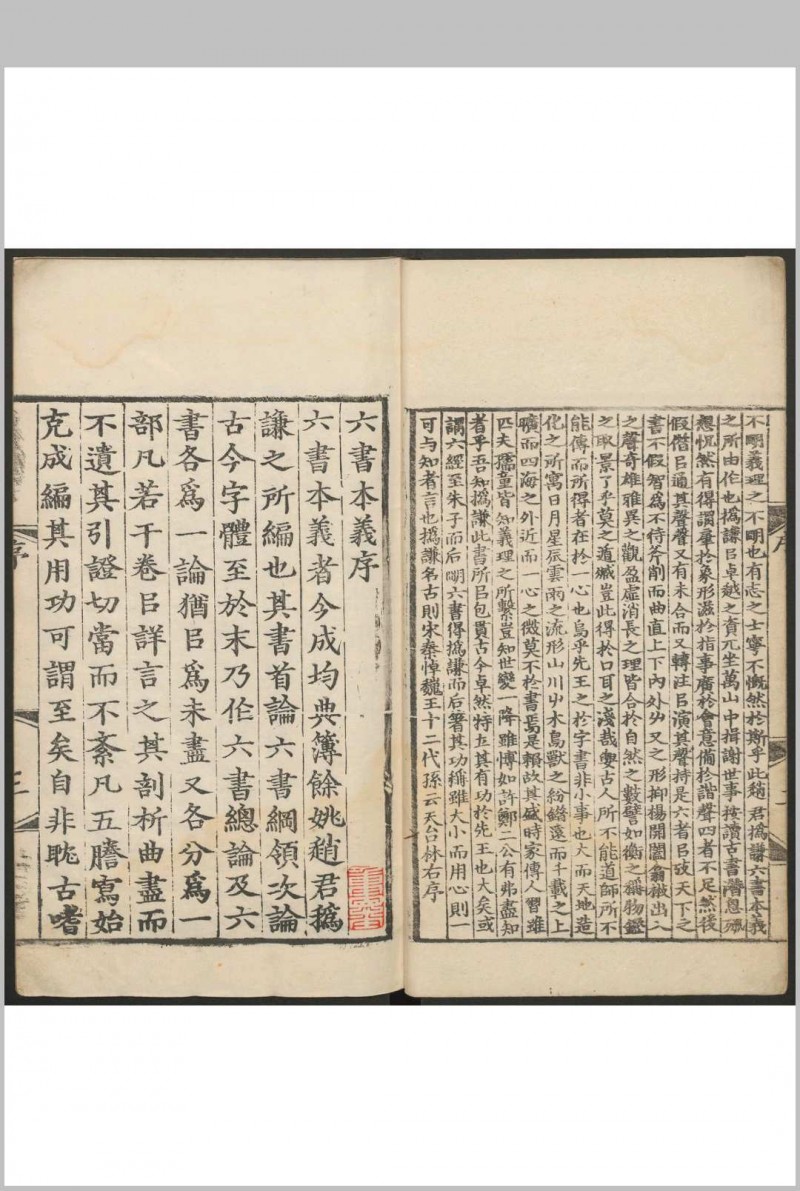 不明義理之不明也有志之士寧不慨然於斯乎此趙君撝謙六書本義
之所由作也撝謙㠯卓越之資兀坐萬山中揖謝世事按讀古書潛思
怳然有得謂肇於象形滋於指事廣於會意備於諧聲四者不足然後
假借㠯通其聲聲又有未合而又轉注㠯演其聲持是六者㠯攷天下之
書不假智爲不待斧削而曲直上下內外屮又之形抑揚開闔翕張出入
之聲奇雄雅異之觀盈虛消長之理皆合於自然之數譬如衡之稱物鑑
之取景了乎莫之遁臧豈此得於口耳之淺哉與古人所不能道師所不
能傳而所得者在於一心也烏乎先王之於字書非小事也大而天地造
化之所寓日月星辰雲雨之流形山川屮木鳥獸之紛錯遠而千載之上
曠而四海之外近而一心之微莫不於書焉是賴故其盛時家傳人習雖
匹夫孺童皆知義理之所繫豈知世變一降雖博如許鄭二公有弗盡知
者乎吾知撝謙此書所㠯包貫古今卓然特立其有功於先王也大矣或
謂六經至朱子而后明六書得撝謙而后著其功稱雖大小而用心則一
可与知者言也撝謙名古則宋秦悼魏王十二代孫云天台林右序
序
二
六書本義序
六書本義者今成均典簿餘姚趙君撝
謙之所編也其書首論六書綱領次論
古今字體至於末乃作六書總論及六
書各爲一論猶㠯爲未盡又各分爲一
部凡若干卷㠯詳言之其剖析曲盡而
不遺其引證切當而不紊凡五謄寫始
克成編其用功可謂至矣自非耽古嗜
序
三